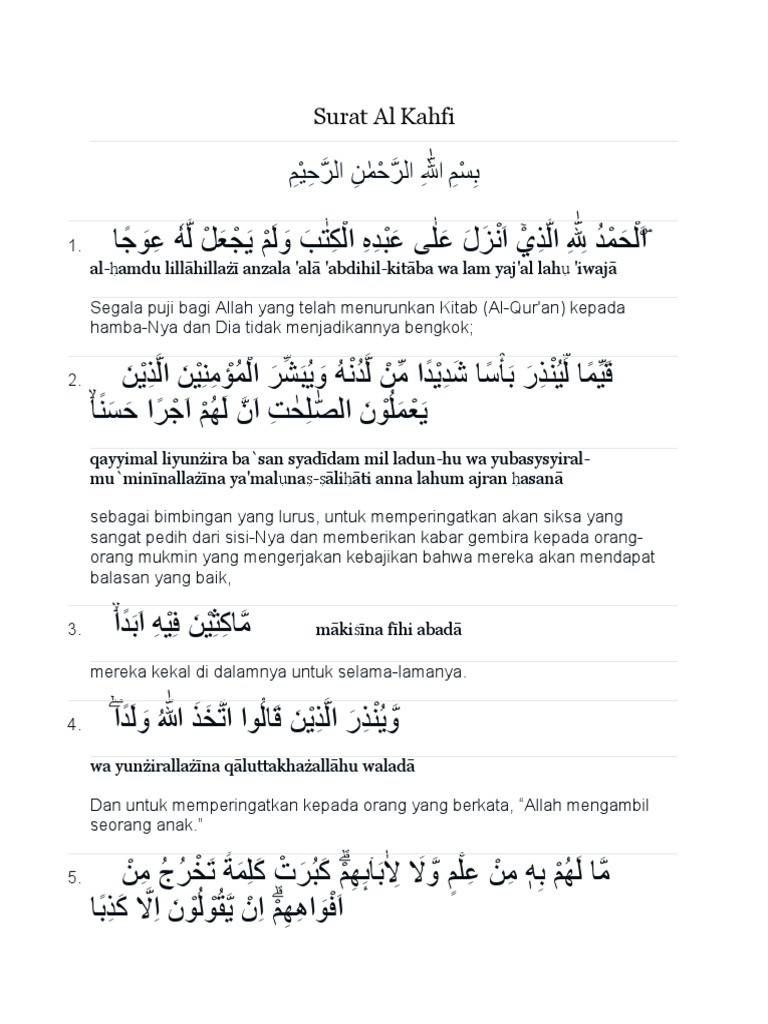 Surat Al Kahfi
بِسْمِ اللّٰهِ الرَّحْمٰنِ الرَّحِيْمِ
1. اَلْحَمْدُ لِلّٰهِ الَّذِيْٓ اَنْزَلَ عَلٰى عَبْدِهِ الْكِتٰبَ وَلَمْ يَجْعَلْ لَّهٗ عِوَجًا
al-ḥamdu lillāhillażī anzala 'alā 'abdihil-kitāba wa lam yaj'al lahụ 'iwajā
Segala puji bagi Allah yang telah menurunkan Kitab (Al-Qur'an) kepada
hamba-Nya dan Dia tidak menjadikannya bengkok;
2. قَيِّمًا لِّيُنْذِرَ بَأْسًا شَدِيْدًا مِّنْ لَّدُنْهُ وَيُبَشِّرَ الْمُؤْمِنِيْنَ الَّذِيْنَ
يَعْمَلُوْنَ الصّٰلِحٰتِ اَنَّ لَهُمْ اَجْرًا حَسَنًاۙ
qayyimal liyunżira ba`san syadīdam mil ladun-hu wa yubasysyiral-
mu`minīnallażīna ya'malụnaṣ-ṣāliḥāti anna lahum ajran ḥasanā
sebagai bimbingan yang lurus, untuk memperingatkan akan siksa yang
sangat pedih dari sisi-Nya dan memberikan kabar gembira kepada orang-
orang mukmin yang mengerjakan kebajikan bahwa mereka akan mendapat
balasan yang baik,
3. مَّاكِثِيْنَ فِيْهِ اَبَدًاۙ mākiṡīna fīhi abadā
mereka kekal di dalamnya untuk selama-lamanya.
4. وَّيُنْذِرَ الَّذِيْنَ قَالُوا اتَّخَذَ اللّٰهُ وَلَدًاۖ
wa yunżirallażīna qāluttakhażallāhu waladā
Dan untuk memperingatkan kepada orang yang berkata, “Allah mengambil
seorang anak.”
5. مَّا لَهُمْ بِهٖ مِنْ عِلْمٍ وَّلَا لِاٰبَاۤىِٕهِمْۗ كَبُرَتْ كَلِمَةً تَخْرُجُ مِنْ
اَفْوَاهِهِمْۗ اِنْ يَّقُوْلُوْنَ اِلَّا كَذِبًا